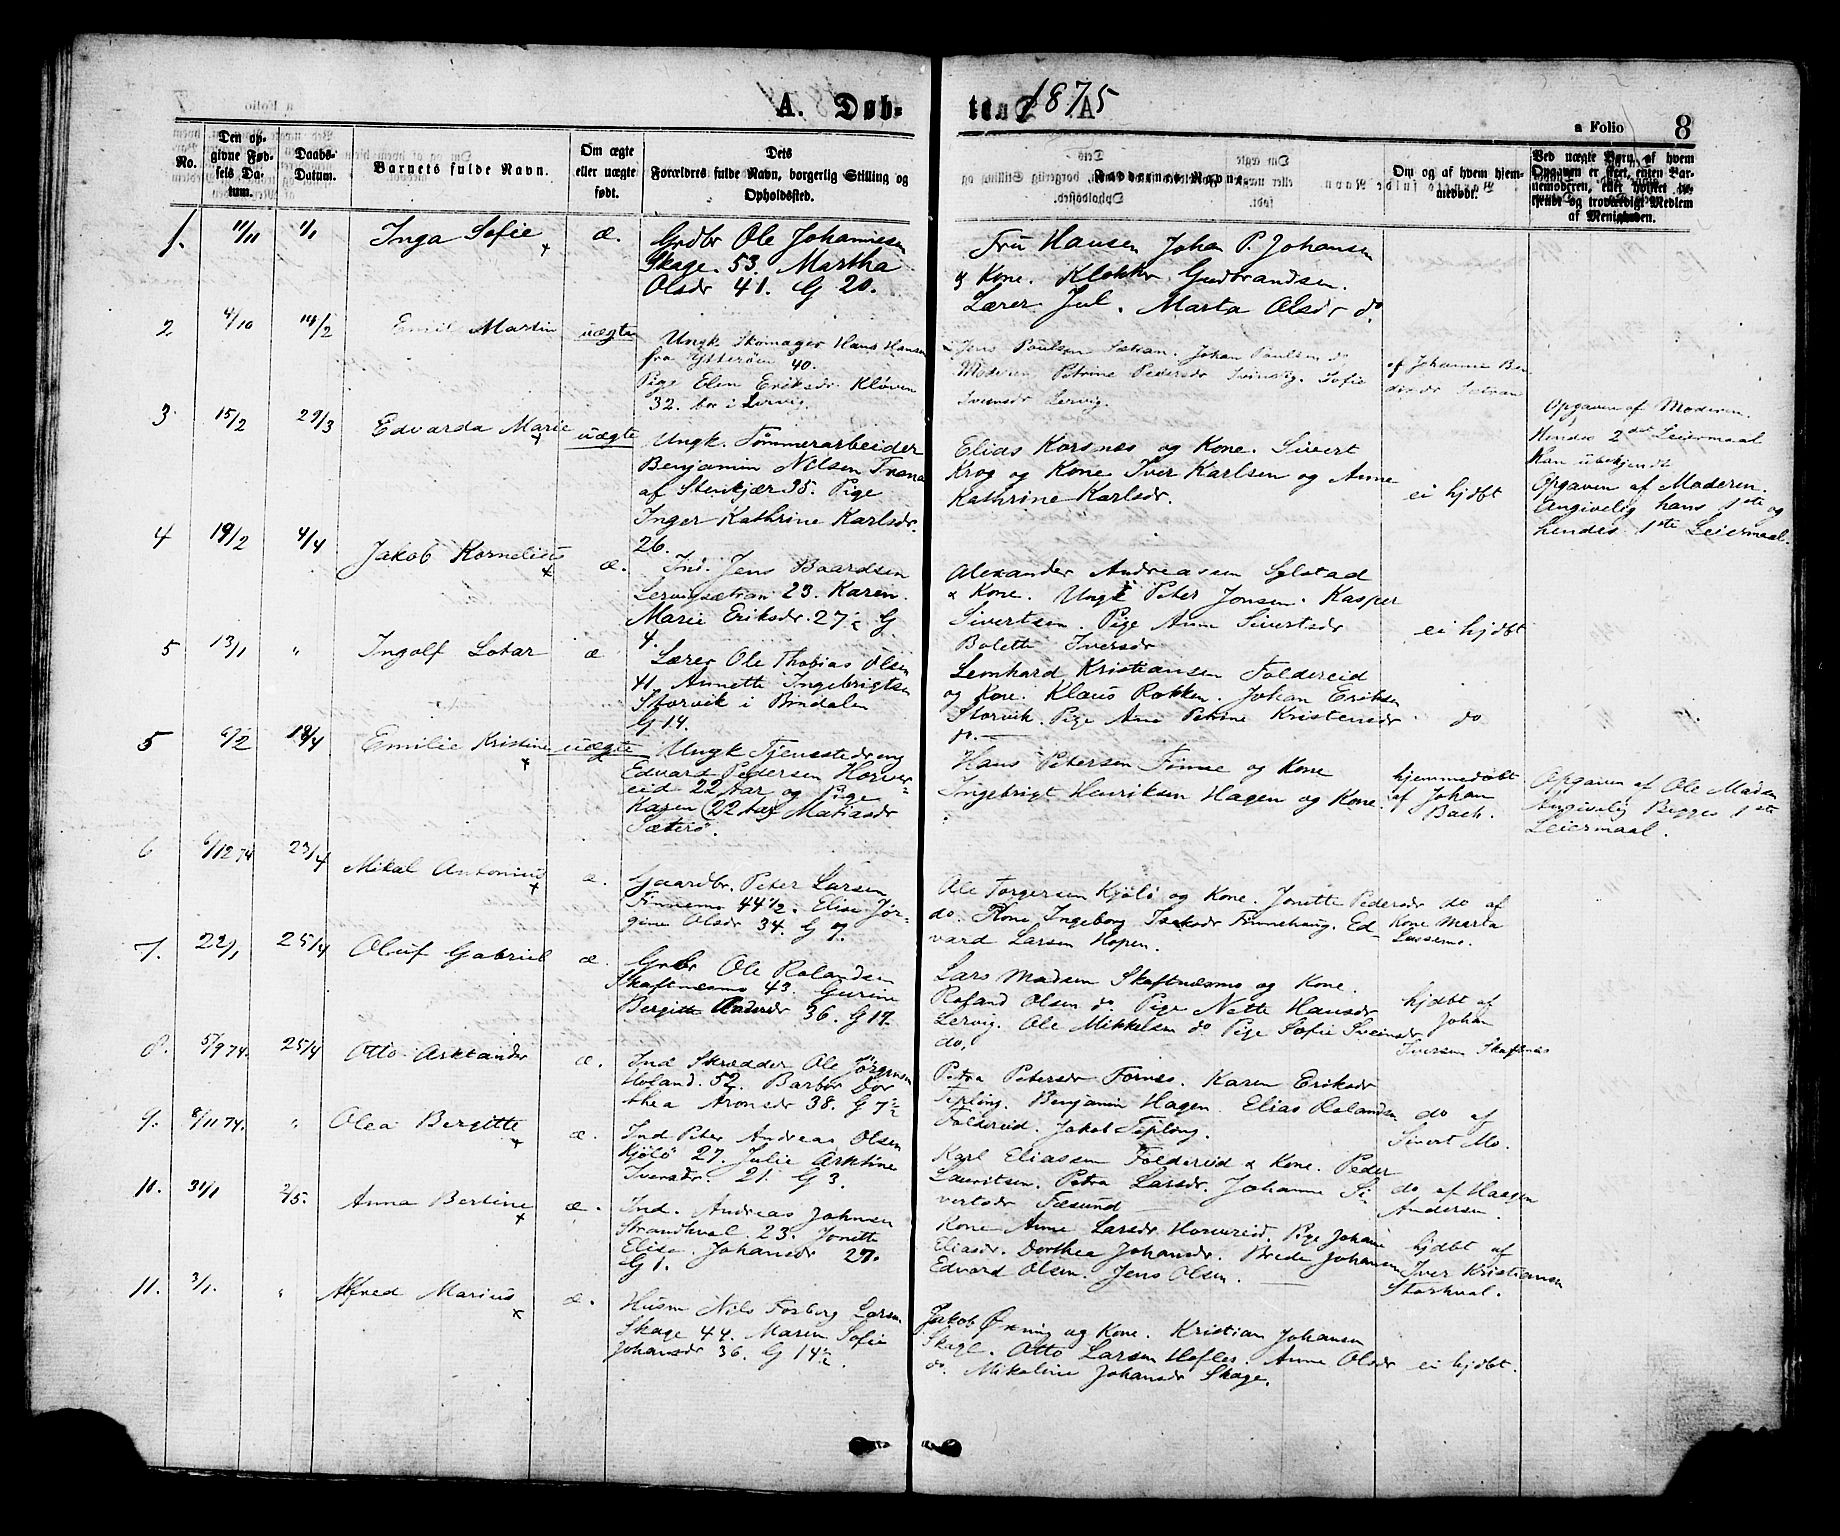 1875
A. Døb-
te.
a Folio 8
No.
Den op-
givne Fød-
sels Da-
tum.
Daabs-
Datum.
Barnets fulde Navn.
Om ægte
eller uægte
født.
Dets
Forældres fulde Navn, borgerlig Stilling og
Opholdssted.
Faddernes Navne.
Om og af hvem hjem-
medøbt.
Ved uægte Børn, af hvem
Opgaven er skeet, enten Bar-
nemoderen, eller hvilket
og troværdigt Medlem
af Menigheden.
1. 11/11 1/1 Inga Sofie æ.
Grdbr Ole Johannesen
Skage. 53. Martha
Olsdr 41. G 20.
Fru Hansen Johan P. Johansen
& Kone. Klokkr Gudbrandsen.
Lærer Jul. Marta Olsdr do.
2 4/10 14/2 Emil Martin uægte
Ungk Skomager Hans Hansen
fra Ytterøen 40.
Pige Elen Eriksdr Kløven
32. bor i Lervig.
Jens Paulsen Sætran. Johan Paulsen do
Moderen, Petrine Pedersdr Sofie
Svensdr Lervig.
af Johanna Ben
dsdr Sætran
Opgaven af Moderen.
Hendes 2det Leiermaal
Han ubekjendt
3 15/2 29/3 Edvarda Marie uægte
Ungk. Tømmerarbeider
Benjamin Nilsen Trana
af Stenkjær 35. Pige
Inger Kathrine Karlsdr.
26.
Elias Korsnes og Kone. Sivert
Krog og Kone Iver Karlsen og Anne
Kathrine Karlsdr.
ei hjdbt
Opgaven af Moderen.
Angivelig hans 1ste og
hendes 1ste Leiermaal.
4 19/2 4/4 Jakob Kornelius æ.
Ind. Jens Baardsen
Lervigsætran 23. Karen
Marie Eriksdr. 27 G
4.
Alexander Andreassen Sylstad
& Kone. Ungk Peter Jonsen. Kasper
Sivertsen. Pige Anne Sivertsdr
Bolette Iversdr
ei hjdbt
5 13/1 " Ingolf Lotar æ
Lærer Ole Thobias Olsen
41. Annette Ingebrigtsen
Storvik i Bindalen
G 14.
Leonhard Kristiansen Foldereid
og Kone. Klaus Rokken. Johan Eriksen
Storvik. Pige Ane Petrine Kristensdr
do.
do
5 6/2 18/4 Emilie Kristine uægte
Ungk Tjenestedreng
Edvard Pedersen Horver-
eid 22 Aar og Pige
Karen (22 Aar) Matiasdr
Sæterø.
Hans Petersen Finne og Kone
Ingebrigt Henriksen Hagen og Kone.
hjemmedøbt
af Johan
Bach.
Opgaven af Ole Madsen
Angivelig Begges 1ste
Leiermaal.
6 6/12 74 23/4 Mikal Antonius æ.
Gaardbr. Peter Larsen
Finnemo 44 1/2. Elise Jør-
gine Olsdr 34. G 7.
Ole Torgersen Kjölö og Kone. Jonette Pedersdr
do. Kone Ingeborg Isaksdr Finnehaug. Ed-
vard Larsen Hopen.
do af
Kone Marta
7. 22/1 25/4 Oluf Gabriel æ.
Grbr Ole Rolandsen
Skaftnæsmo 43. Gurine
Bergitte Andersdr 36. G 17.
Lars Madsen Skaftnæsmo og Kone.
Roland Olsen do. Pige Nette Hansdr
Lervig. Ole Mikkelsen do Pige Sofie Svensdr
do.
hjdbt af
Johan
Iversen Skaftnæs
8. 5/9 74. 25/4 Otto Arktander æ.
Ind Skrædder Ole Jørgensen
Høland. 52. Barbor Dor
thea Aronsdr 38. G 7
Petra Petersdr Fornes. Karen Eriksdr
Tepling. Benjamin Hagen. Elias Rolandsen
Foldereid. Jakob Tepling.
do af
Sivert Mo.
9. 8/11 74. " Olea Bergitte æ.
Ind Peter Andreas Olsen
Kjölö 27. Julie Arktine
Iversdr. 21. G 3.
Karl Eliassen Foldereid & Kone. Peder
Lauritsen. Petra Larsdr. Johanne Si-
vertsdr Fæsund
do af Haagen
Andersen.
10. 31/1 2/5. Anna Bertine æ.
Ind. Andreas Johnsen
Strandhval. 23. Jonette
Elisa Johansdr 27.
G 1.
Kone Anne Larsdr Horvereid. Pige Johane
Eliasdr. Dorthea Johansdr. Brede Johansen
Edvard Olsen. Jens Olsen.
hjdbt af
Iver Kristiansen
Storhval.
11. 3/1. " Alfred Marius æ.
Husm Nils Forberg Larsen
Skage 44. Maren Sofie
Johansdr 36. G 14 1/2.
Jakob Øxning og Kone. Kristian Johansen
Skage. Otto Larsen Høfles. Anne Olsdr
do. Mikaline Johansdr Skage.
ei hjdbt.